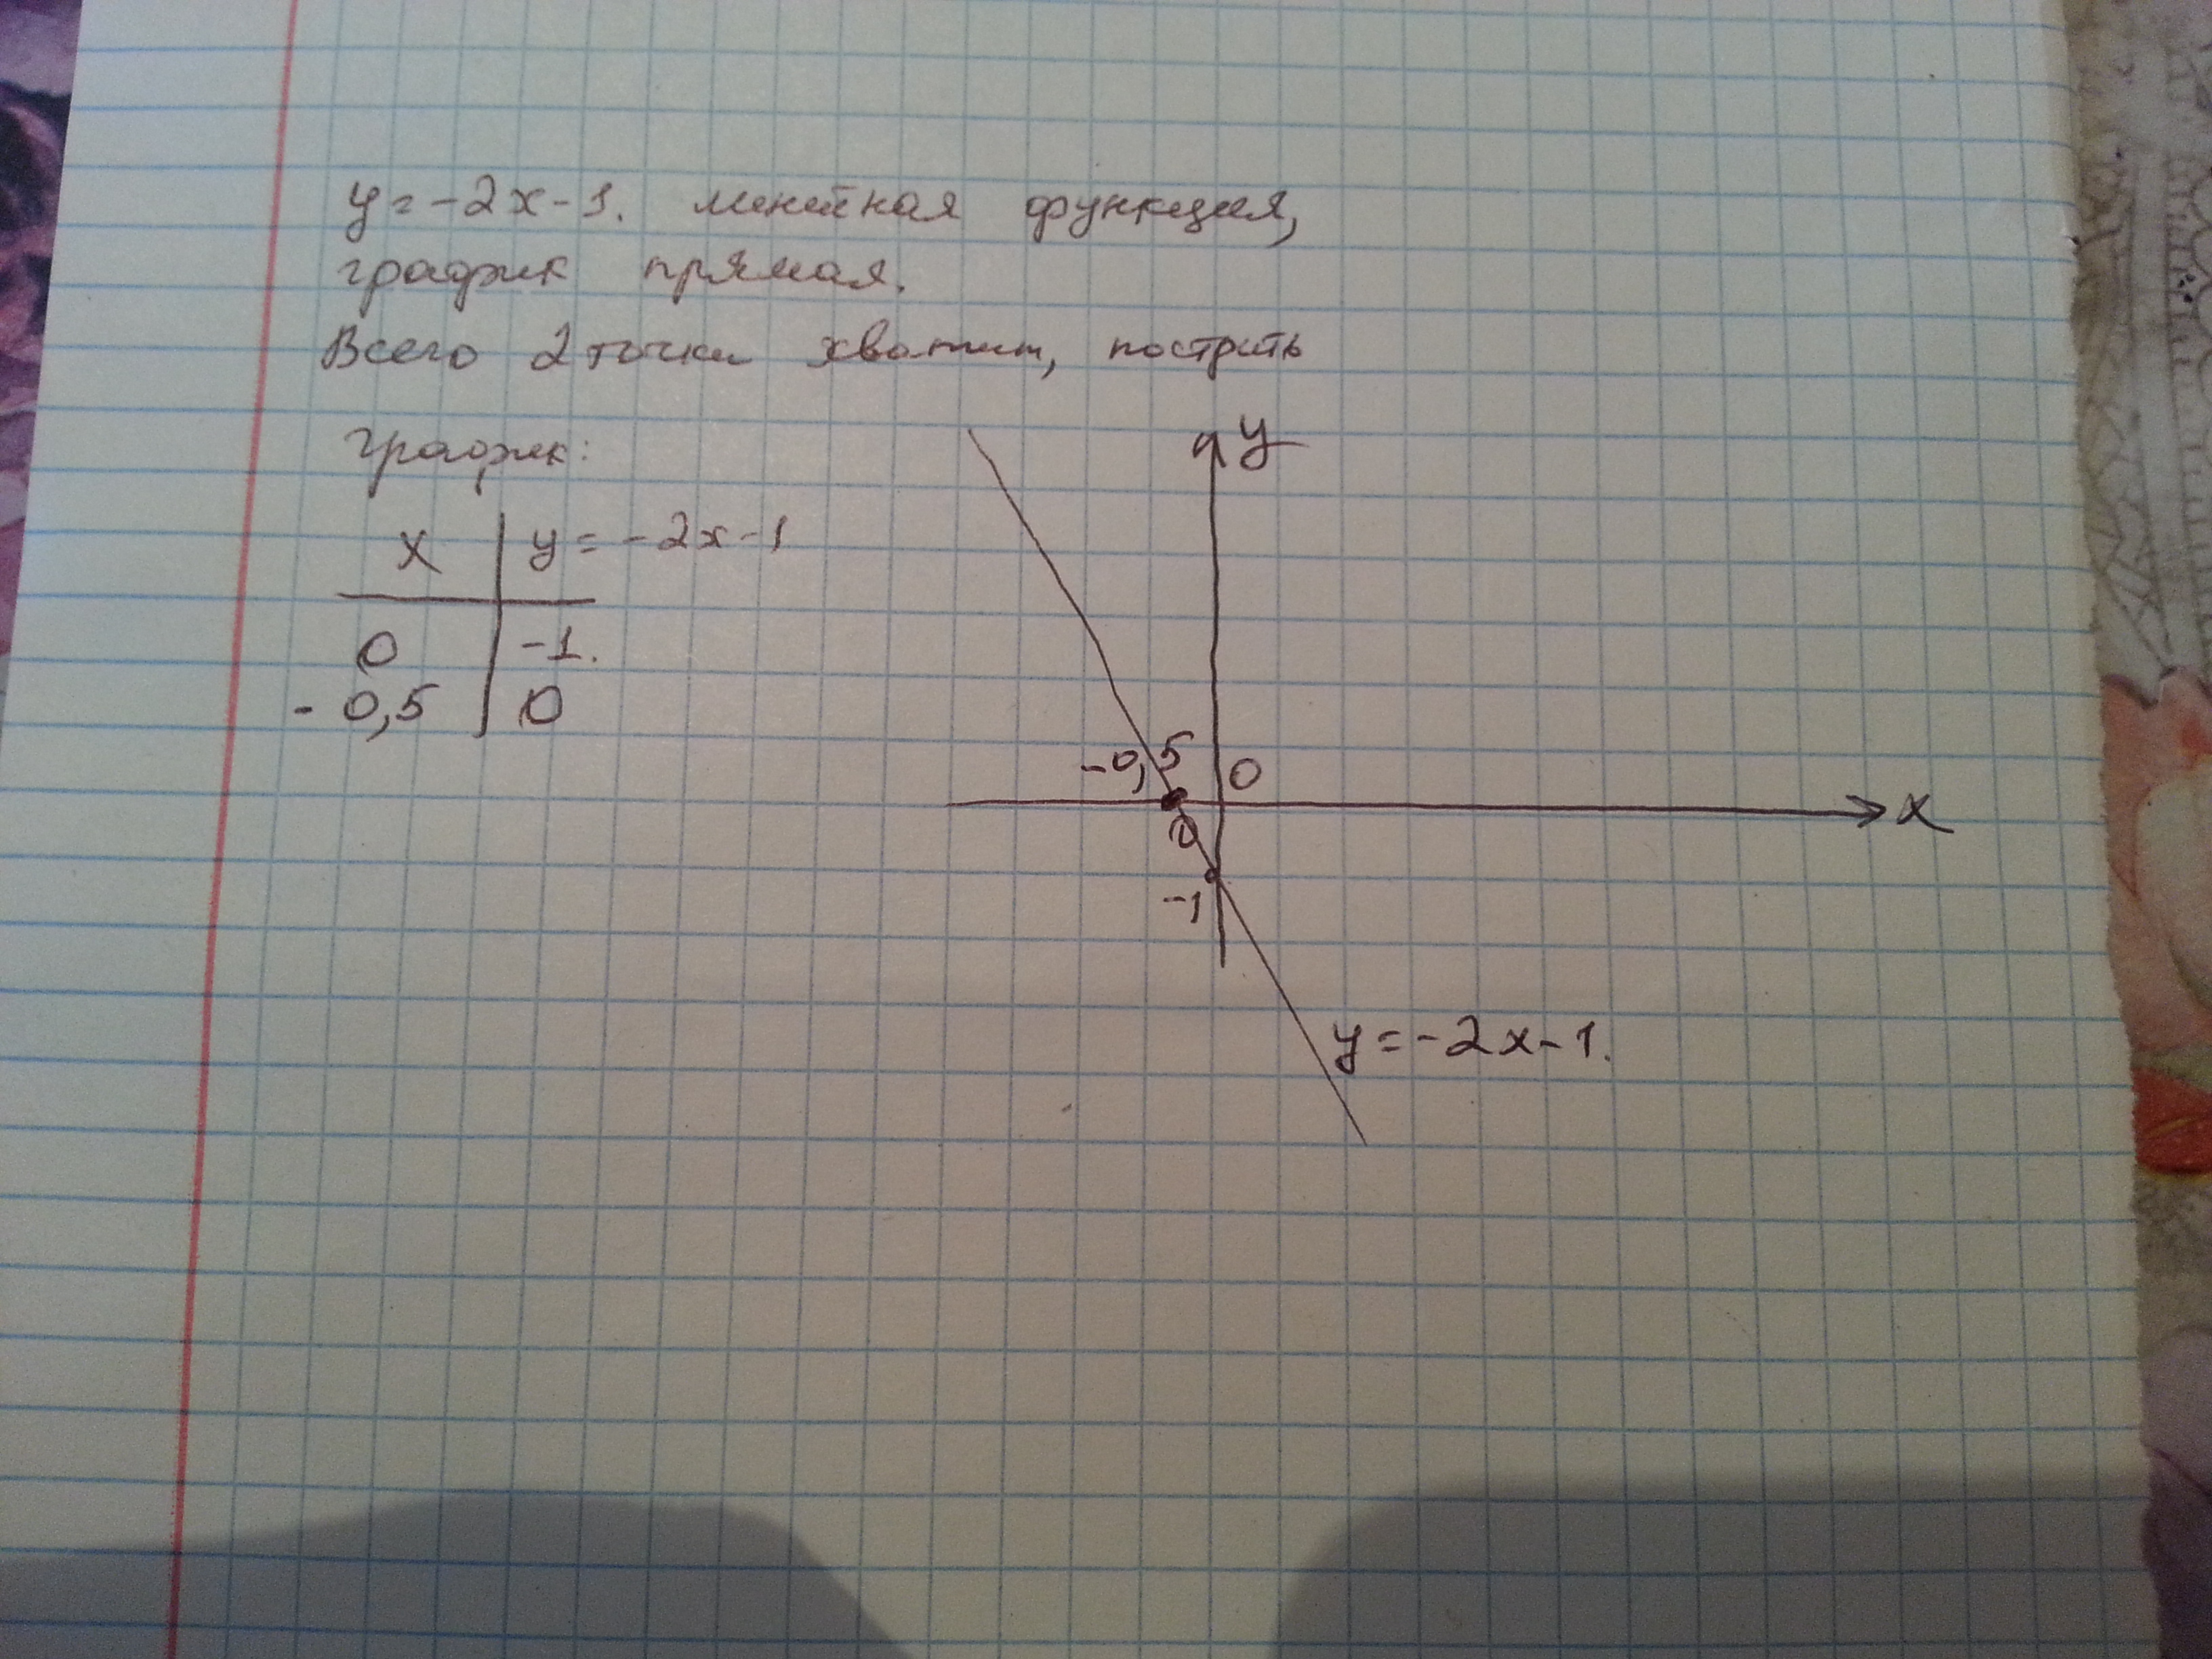 y=-2x-1. линейная функция,
график прямая.
Всего 2 точки хватит, построить
график:
x | y=-2x-1
0 | -1.
-0,5 | 0
y
-0,5
0
x
0
-1
y=-2x-1.